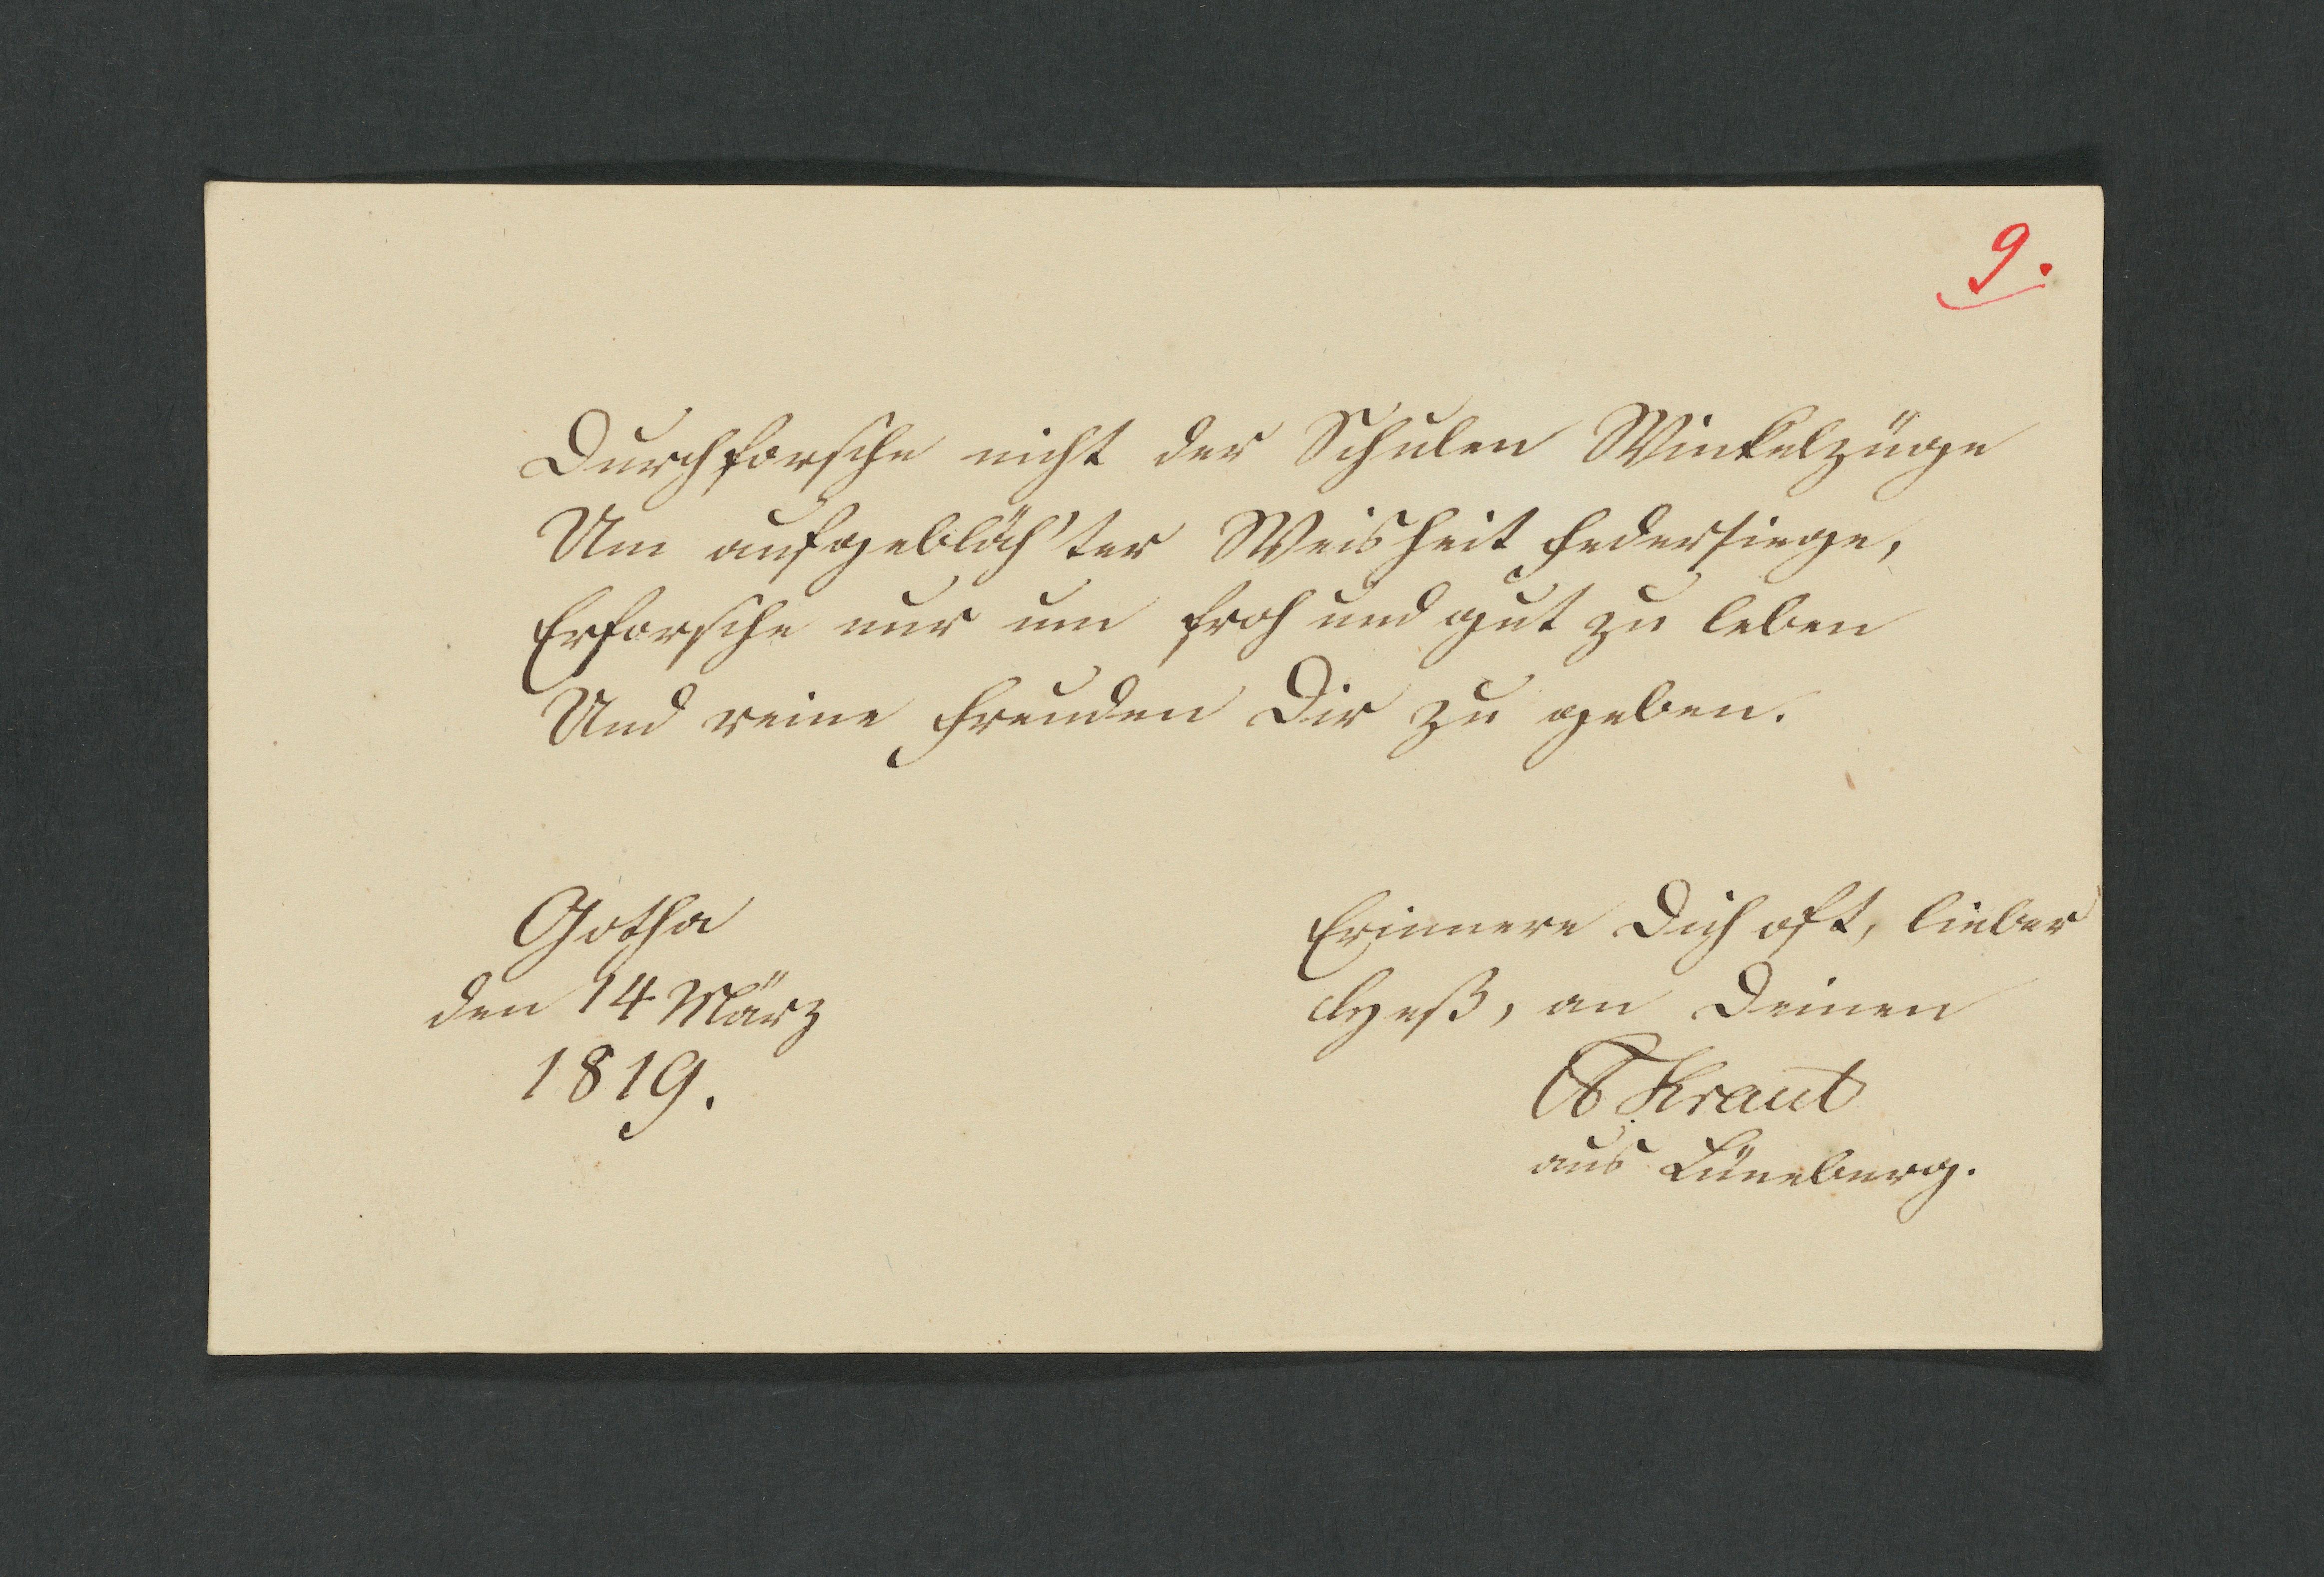 9.
Durchforsche nicht der Schulen Winkelzüge
Um aufgebläh'ter Weisheit Federsiege,
Erforsche nur um froh und gut zu leben
Und reine Freuden Dir zu geben.
Gotha
den 14 März
1819.
Erinnere Dich oft, lieber
Heß, an Deinen
Kraut
aus Lüneburg.